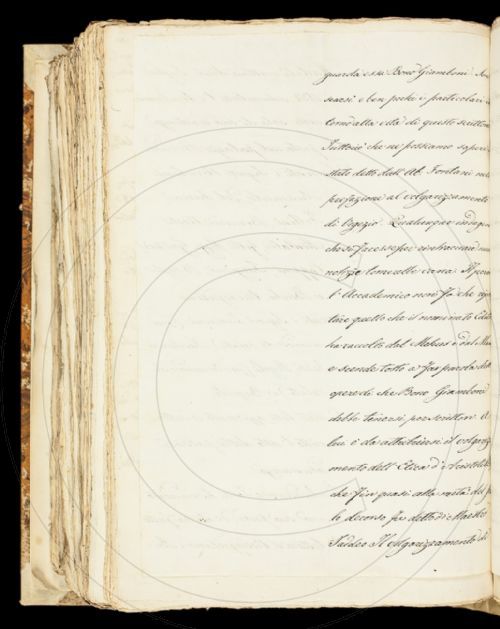 guarda essa Bono Giamboni. Son
scarsi e ben pochi i particolari in
torno alla età di questo scrittore
Tuttociò che ne possiamo sapere
stato detto dall'Ab. Fontani nella
prefazione al volgarizzamento
di Vegezio. Qualunque indagine
che si facesse per rintracciarne
notizie tornerebbe vana. Il per
l'Accademico non fa che ripe
tere quello che il nominato Edit
ha raccolto dal Mehus e dal Man
e scende tosto a far parola delle
opere di che Bono Giamboni
debbe tenersi per scrittore. A
lui è da attribuirsi il volgariz
mento dell'Etica d'Aristotele
che fin quasi alla metà del
lo decorso fu detto di Maestro
Taddeo. Il volgarizzamento di